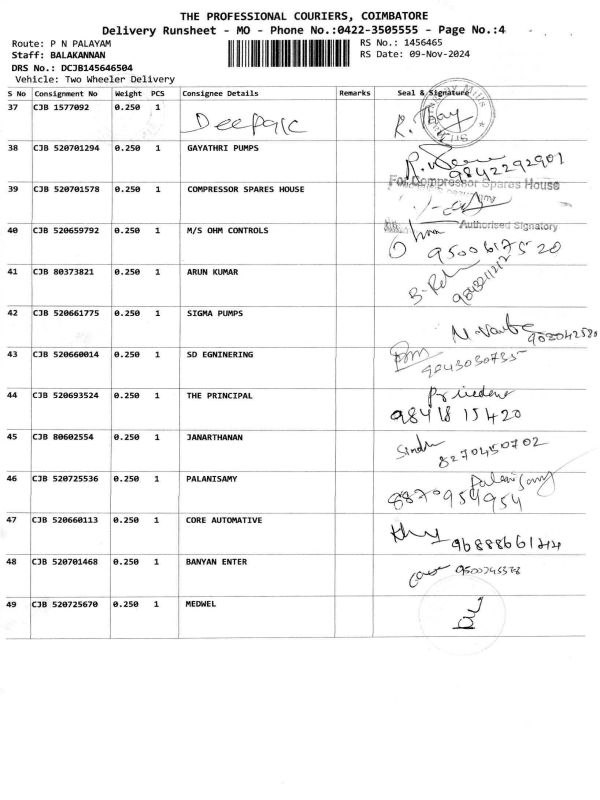 THE PROFESSIONAL COURIERS, COIMBATORE
Delivery Runsheet - MO - Phone No.:0422-3505555 - Page No.:4
Route: P N PALAYAM RS No.: 1456465
Staff: BALAKANNAN RS Date: 09-Nov-2024
DRS No.: DCJB145646504
Vehicle: Two Wheeler Delivery
S No Consignment No Weight PCS Consignee Details Remarks Seal & Signature
37 CJB 1577092 0.250 1 Deepak
38 CJB 520701294 0.250 1 GAYATHRI PUMPS
9842292901
For Compressor Spares House
39 CJB 520701578 0.250 1 COMPRESSOR SPARES HOUSE
Authorised Signatory
40 CJB 520659792 0.250 1 M/S OHM CONTROLS
9500617520
41 CJB 80373821 0.250 1 ARUN KUMAR
42 CJB 520661775 0.250 1 SIGMA PUMPS
43 CJB 520660014 0.250 1 SD EGNINERING
9043030735
44 CJB 520693524 0.250 1 THE PRINCIPAL
9841815420
45 CJB 80602554 0.250 1 JANARTHANAN Sindhu
8270450702
46 CJB 520725536 0.250 1 PALANISAMY Palanisamy
8870954954
47 CJB 520660113 0.250 1 CORE AUTOMATIVE
48 CJB 520701468 0.250 1 BANYAN ENTER
49 CJB 520725670 0.250 1 MEDWEL